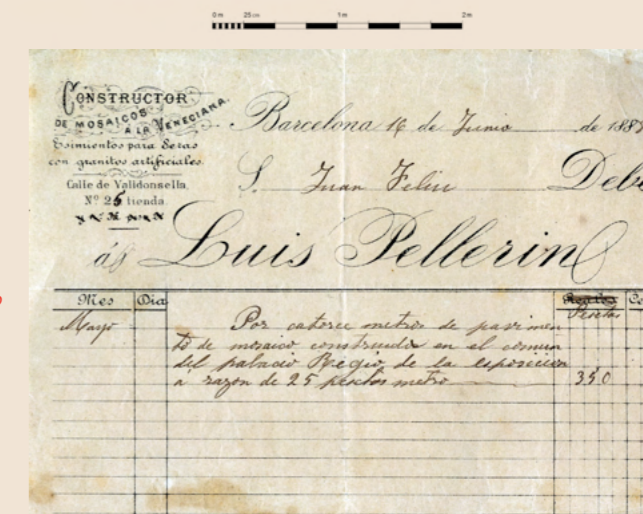 0m 25cm 1m 2m
CONSTRUCTOR
DE MOSAICOS
Á LA VENECIANA.
para
con granitos artificiales
Calle de Valldonsella
Nº 25 tienda
Barcelona 16 de Junio de 188
S. Juan Feliu Deb
á Luis Pellerin
Mes Dia Pesetas
Mayo Por catorce metros de pavimen
to de mosaico construido en el comun
del palacio Regio de la esposicion
á razon de 25 pesetas metro 350